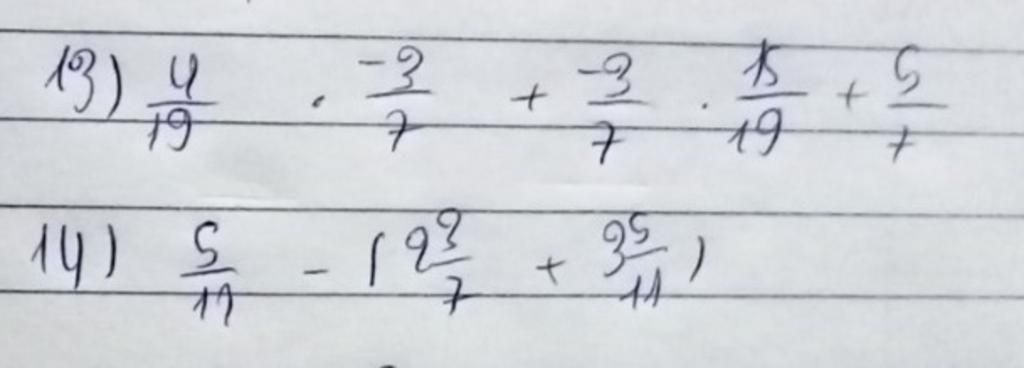 13) 4/19 · -3/7 + -3/7 · 15/19 + 5/7
14) 5/11 - (2 3/7 + 3 5/11)